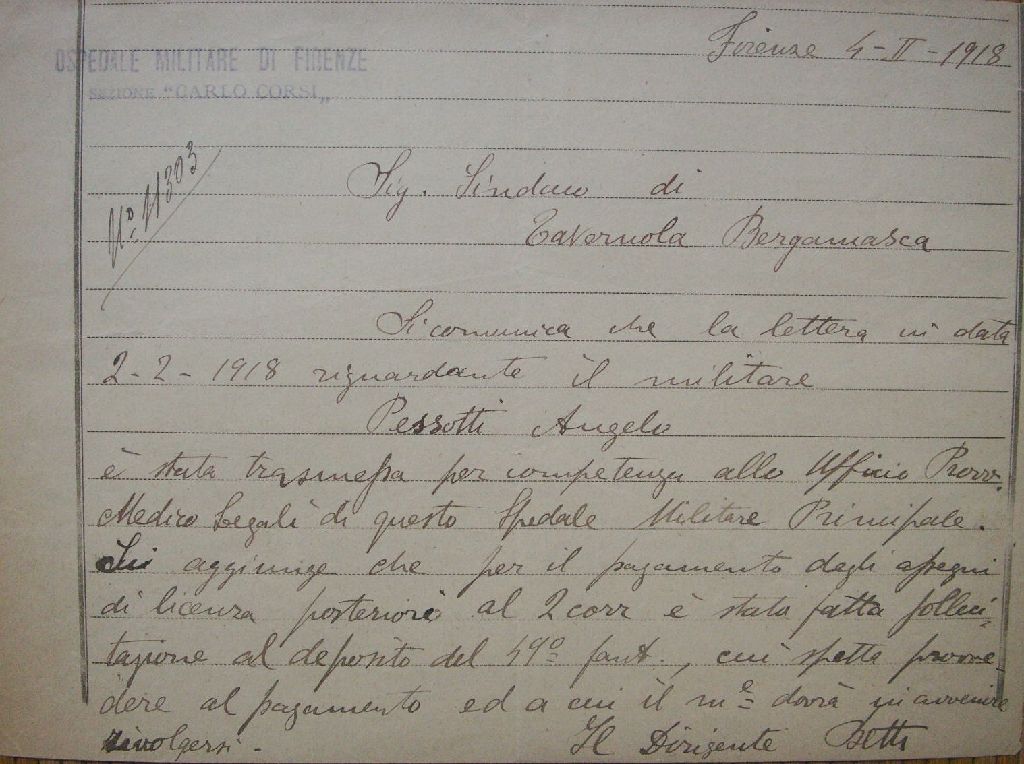 OSPEDALE MILITARE DI FIRENZE
SEZIONE "CARLO CORSI"
Firenze 4-II-1918
N.º 11303
Sig. Sindaco di
Tavernola Bergamasca
Si comunica che la lettera in data
2-2-1918 riguardante il militare
Pessotti Angelo
è stata trasmessa per competenza allo Ufficio Provv.
Medico Legali di questo Spedale Militare Principale.
Si aggiunge che per il pagamento degli assegni
di licenza posteriori al 2 corr è stata fatta solleci-
tazione al deposito del 49º fant., cui spetta provve-
dere al pagamento ed a cui il m.e dovrà in avvenire
rivolgersi -
Il Dirigente Betti